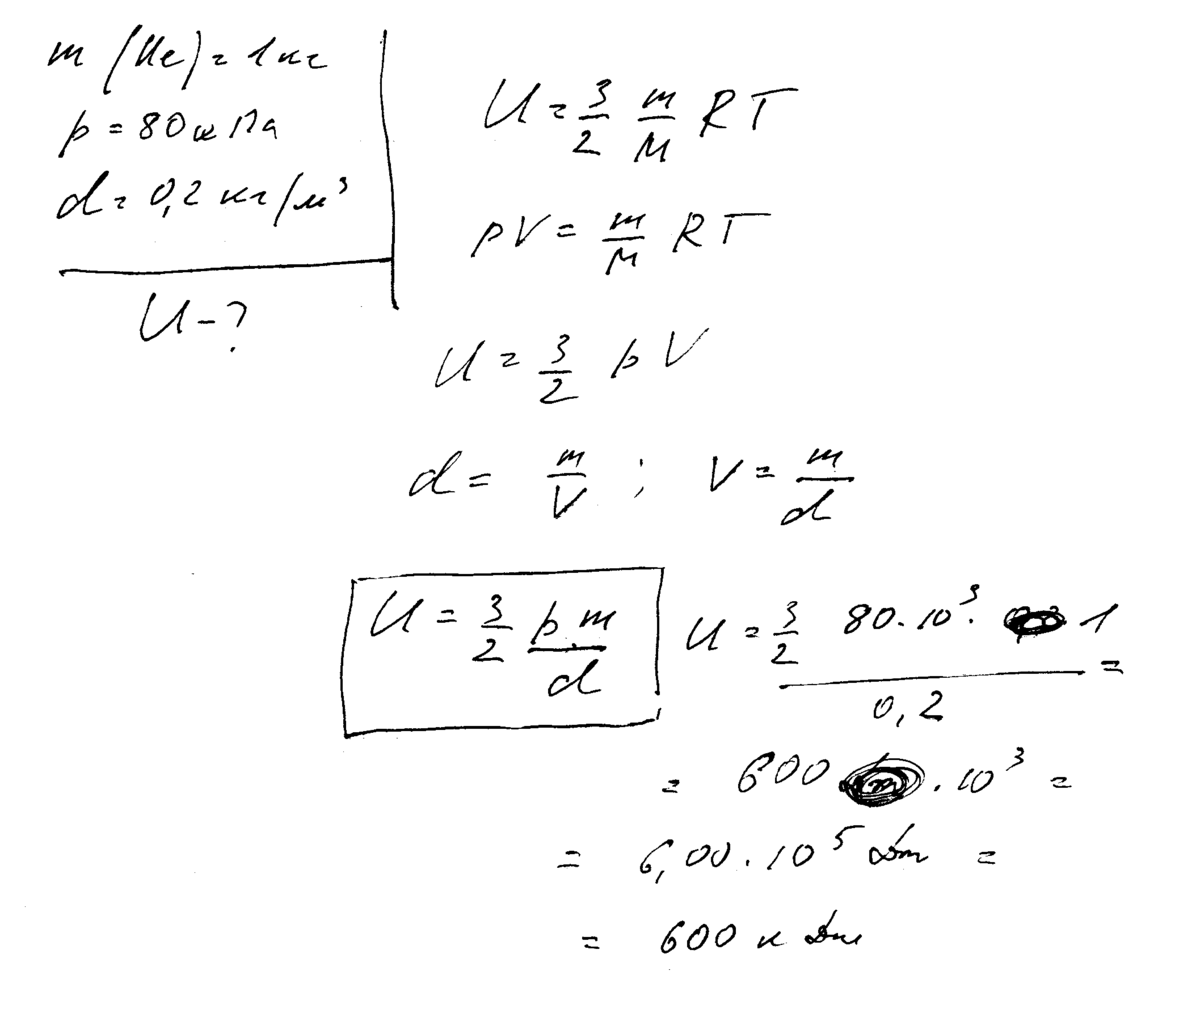 m (He) = 1 кг
p = 80 кПа
d = 0,2 кг/м³
U - ?
U = 3/2 m/M RT
pV = m/M RT
U = 3/2 pV
d = m/V ; V = m/d
U = 3/2 p·m/d
U = 3/2 80·10³·1/0,2 =
= 600 · 10³ =
= 6,00 · 10⁵ Дж =
= 600 кДж